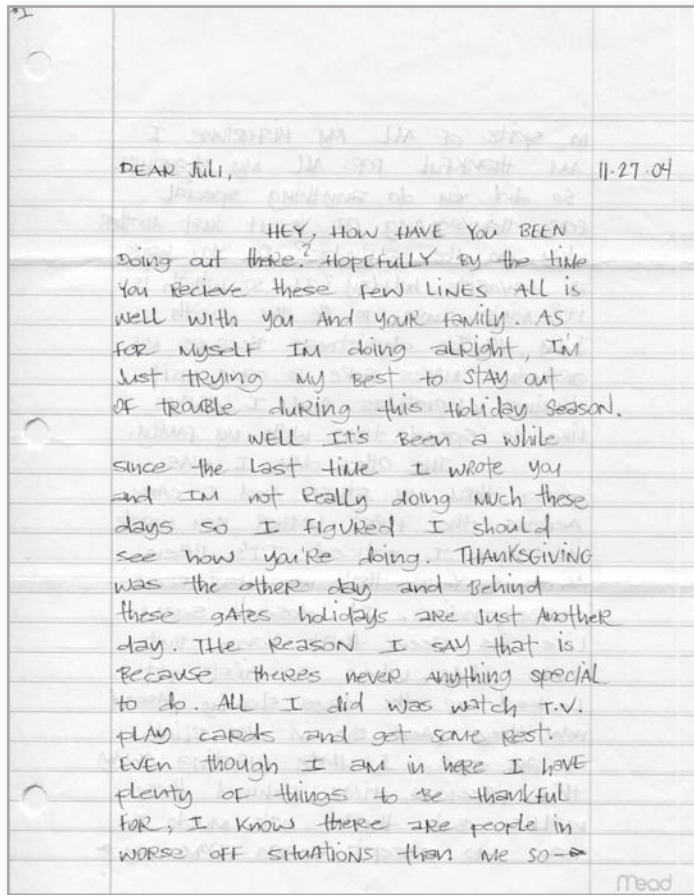 #1
DEAR Juli, 11-27-04
HEY, HOW HAVE YOU BEEN
Doing out there? HOPEFULLY BY the time
You Recieve these FEW LINES ALL is
well with You And YOUR FAMILY. AS
FOR MYSELF IM doing alright, I'M
Just trying MY Best to STAY out
OF TROUBLE during this Holiday Season.
WELL IT'S Been a while
since the Last time I wrote You
and IM not Really doing Much these
days so I FIGURED I should
see how you're doing. THANKSGIVING
was the other day and Behind
these gates holidays. are Just Another
day. THE Reason I SAY that is
Because theres never Anything special
to do. ALL I did was watch T.V.
PLAY cards and get some Rest.
EVEN though I AM in here I HAVE
plenty of things to Be thankful
FOR, I know there are people in
WORSE OFF SITUATIONS than me so→
Mead